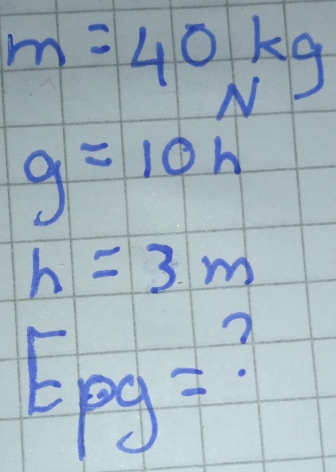 m = 40 kg
N
g = 10 h
h = 3 m
Epg = ?